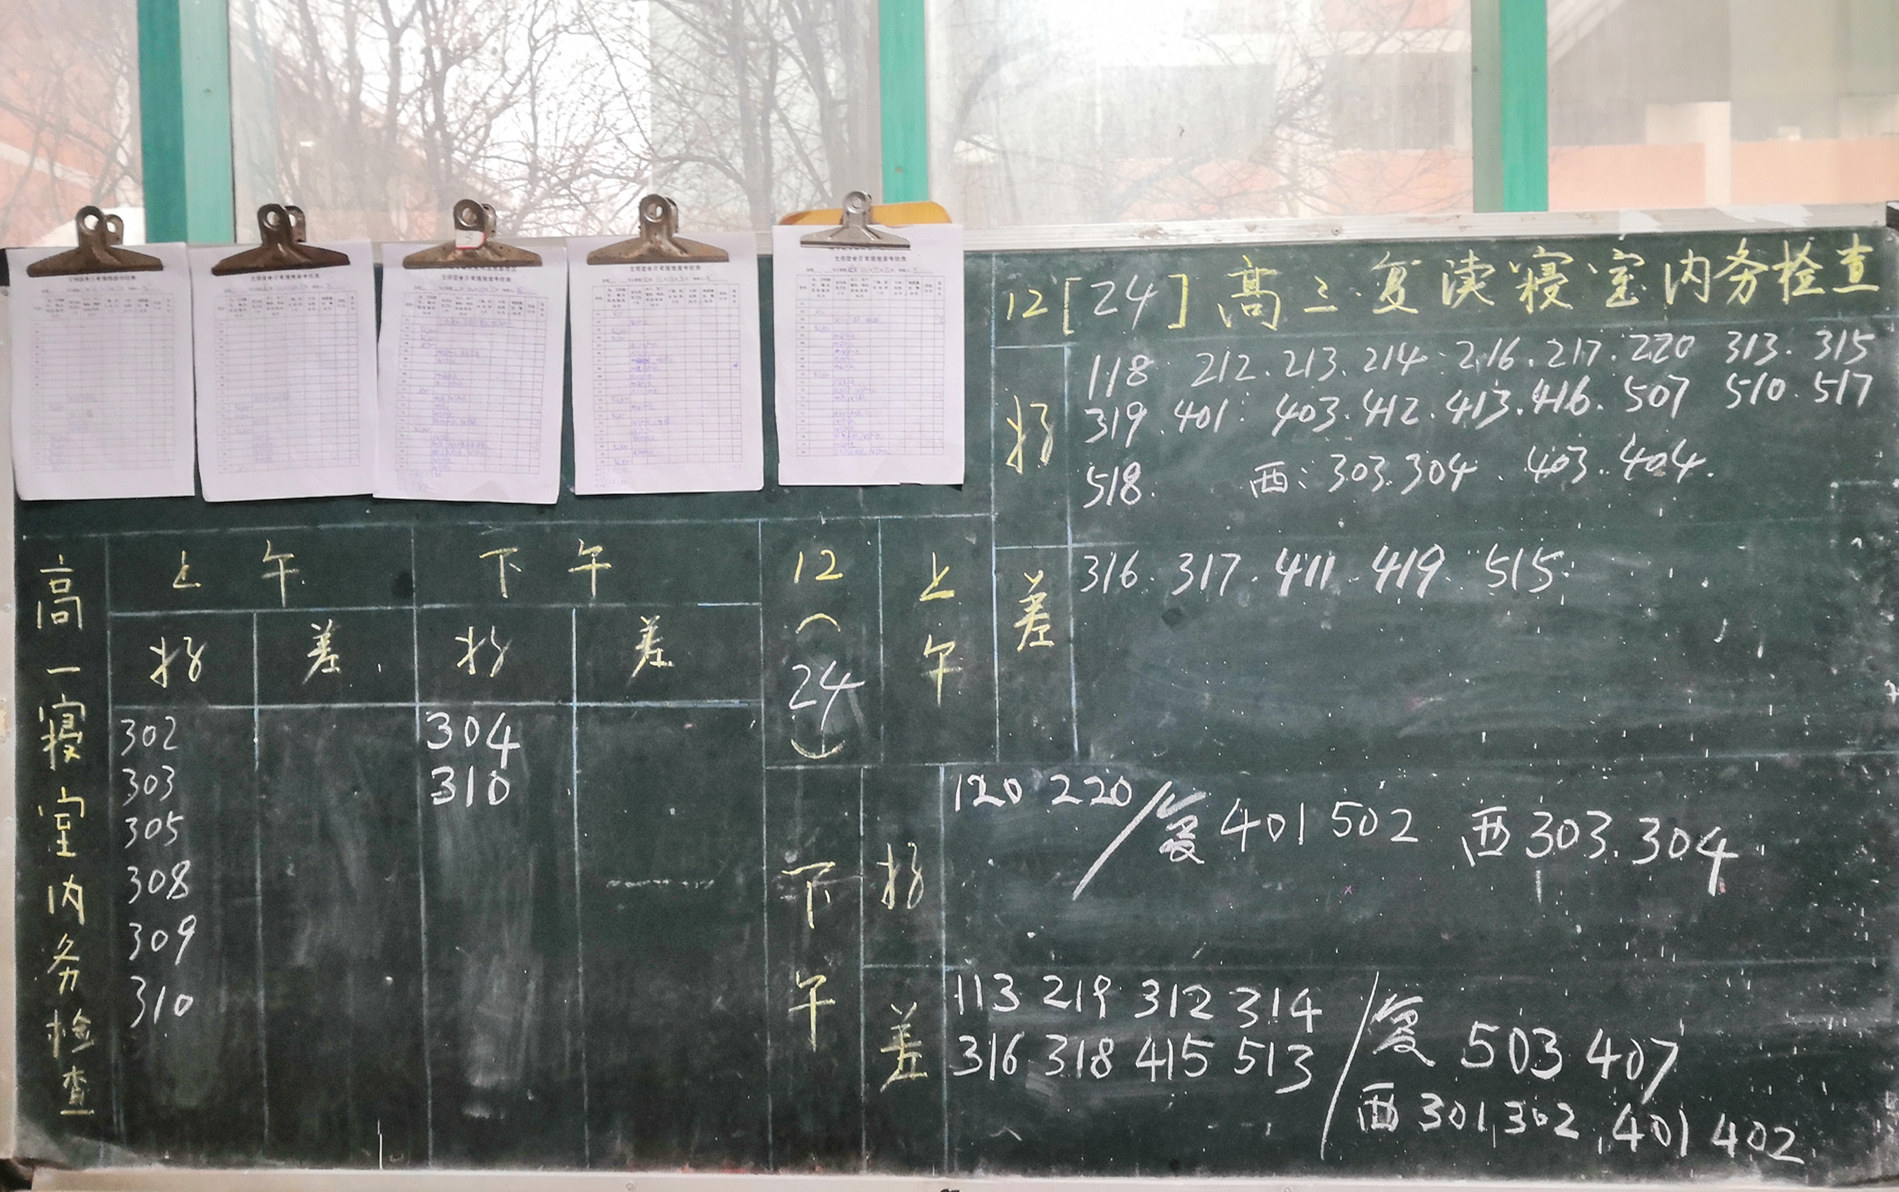 12[24]高三复读寝室内务检查
好
118 212.213.214.216.217.220 313.315
319.401.403.412.413.416.507 510.517
518. 西:303.304.403.404.
差
316.317.411.419.515.
高一寝室内务检查
上午
下午
好
差
好
差
302
303
305
308
309
310
304
310
12(24)
上午
下午
好
120 220/复401 502 西303.304
差
113 219 312 314
316 318 415 513
/复 503 407
西301,302,401 402